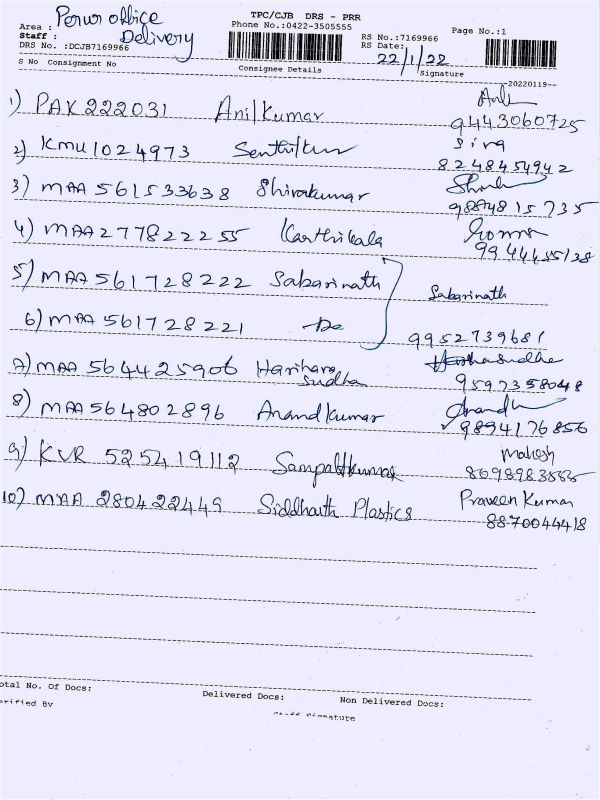 TPC/CJB DRS - PRR
Area : Perur office
Phone No.:0422-3505555
Page No.:1
Staff : Delivery
RS No.:7169966
DRS No. :DCJB7169966
RS Date: 22/1/22
S No Consignment No Consignee Details Signature
20220119--
1) PAK 222031 Anilkumar Anil
9443060725
2) KMU1024973 Senthilkumar Siva
8248454942
3) MAA 561533638 Shivakumar
9884815735
4) MAA 277822255 Karthikala
9944455138
5) MAA 561728222 Sabarinath Sabarinath
6) MAA 561728221 Do 9952739681
7) MAA 564425906 Harihara Sudhan Harihasudha
9597358048
8) MAA 564802896 Anandkumar Anandh
9894176856
9) KVR 525419112 Sampathkumar Mahesh
8698983555
10) MAA 280422449 Siddhauth Plastics Praveen Kumar
8870044418
otal No. Of Docs: Delivered Docs: Non Delivered Docs:
erified By Staff Signature